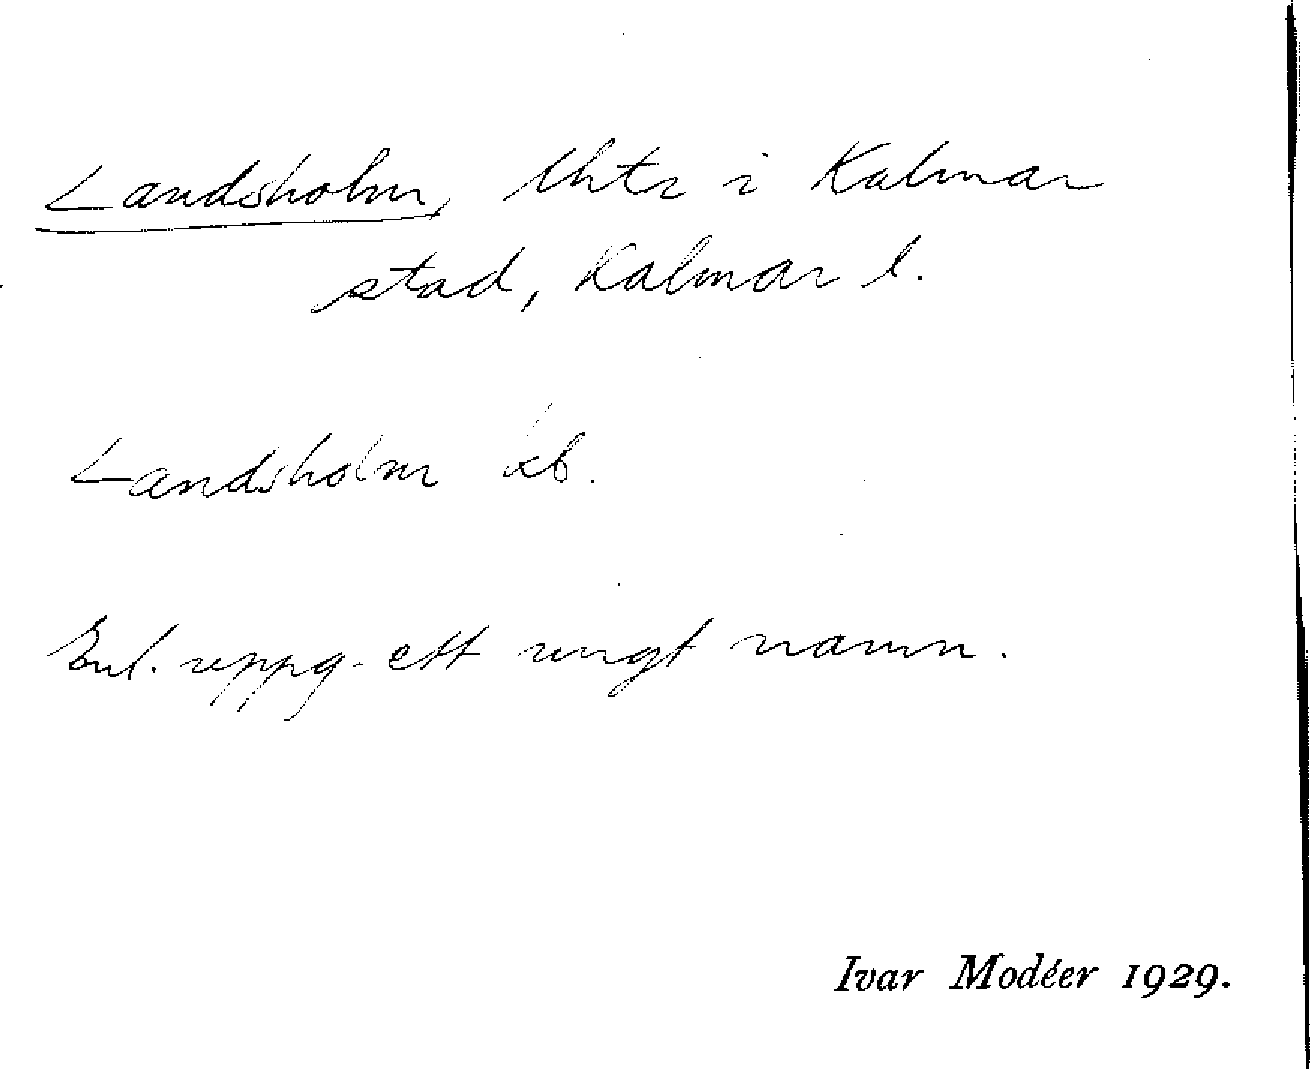 Landsholm, lhtr i Kalmar
stad, Kalmar l.
Landsholm kb.
Enl. uppg. ett ungt namn.
Ivar Modéer 1929.